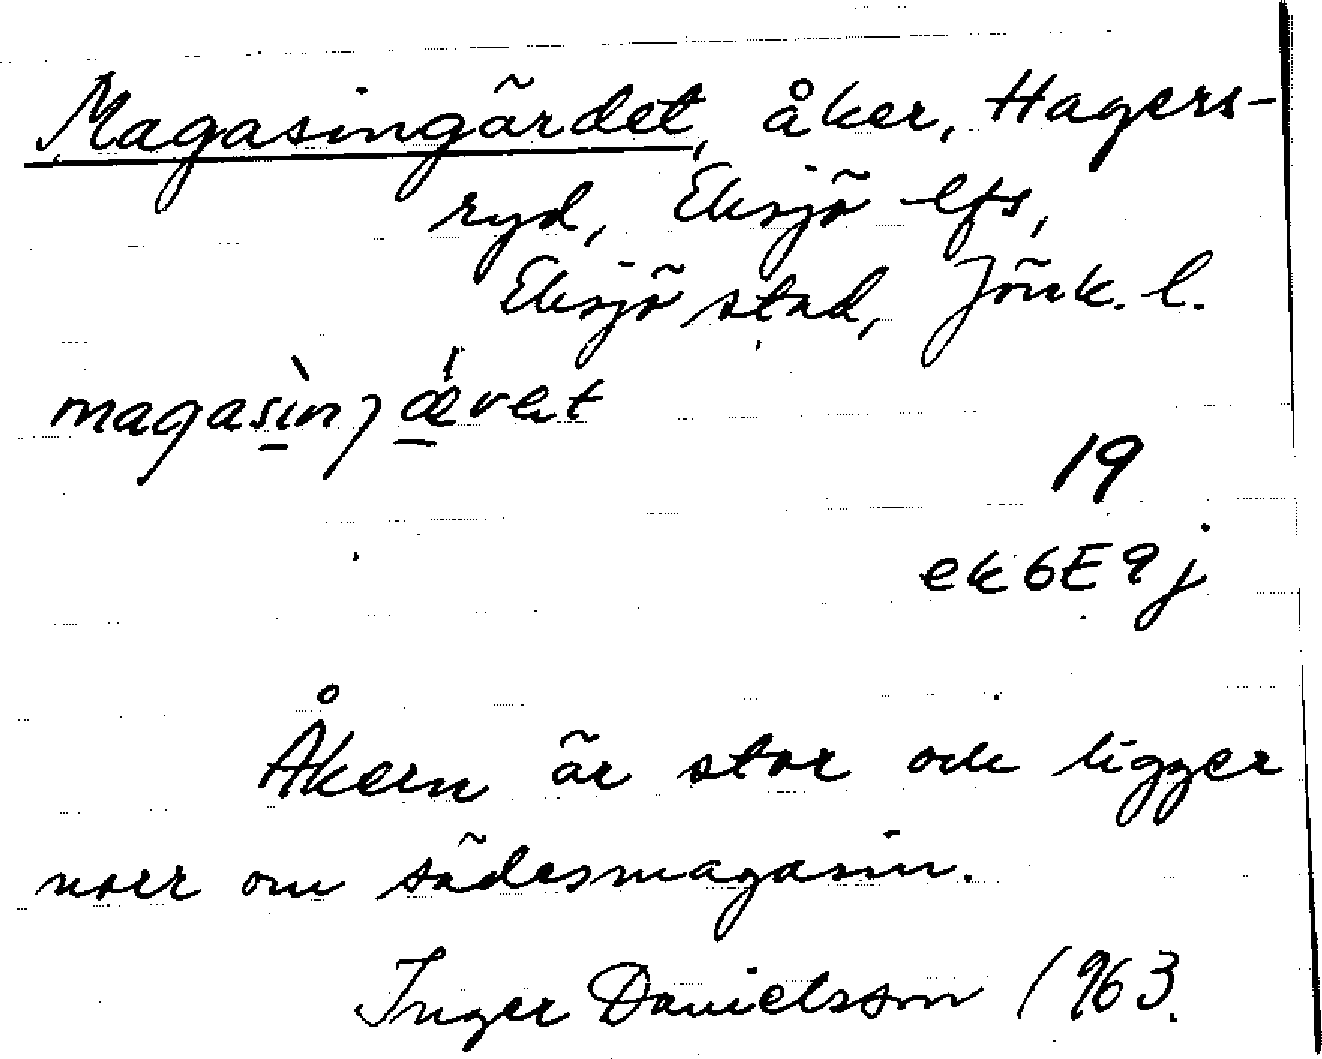 Magasingärdet, åker, Hagers-
ryd, Eksjö lfs,
Eksjö stad, Jönk. l.
19
ek 6E9j
Åkern är stor och ligger
norr om sädesmagasin.
Inger Danielsson 1963.